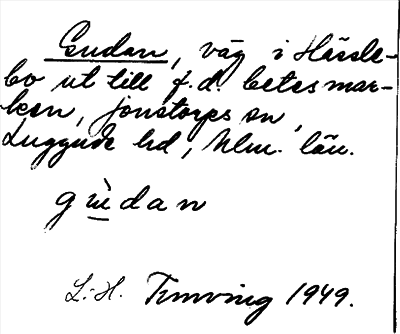 Gudan, väg i Hässle-
bo ut till f.d. betesmar-
ken, Jonstorps sn,
Luggude hd, Mlm. län.
gùdan
L.-H. Tunving 1949.